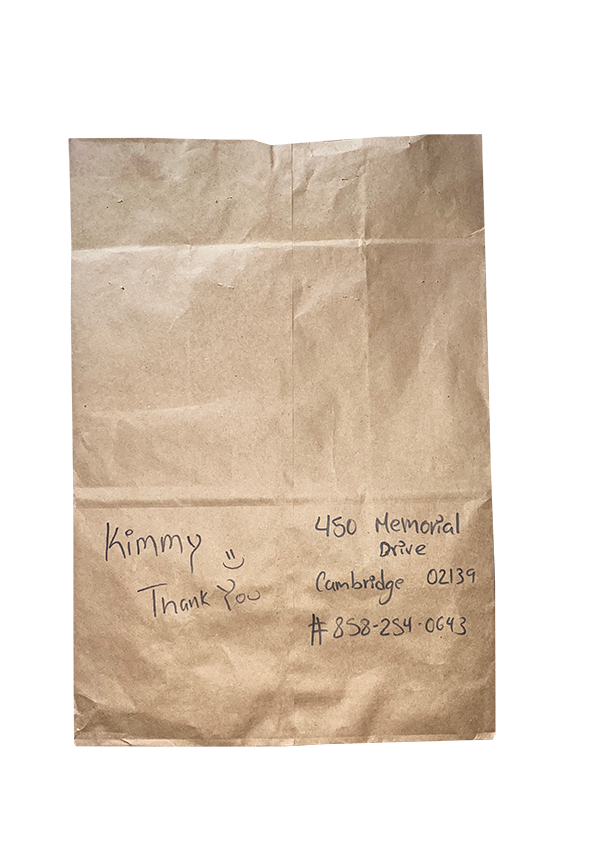 Kimmy
Thank You
450 Memorial
Drive
Cambridge 02139
# 858-254-0643